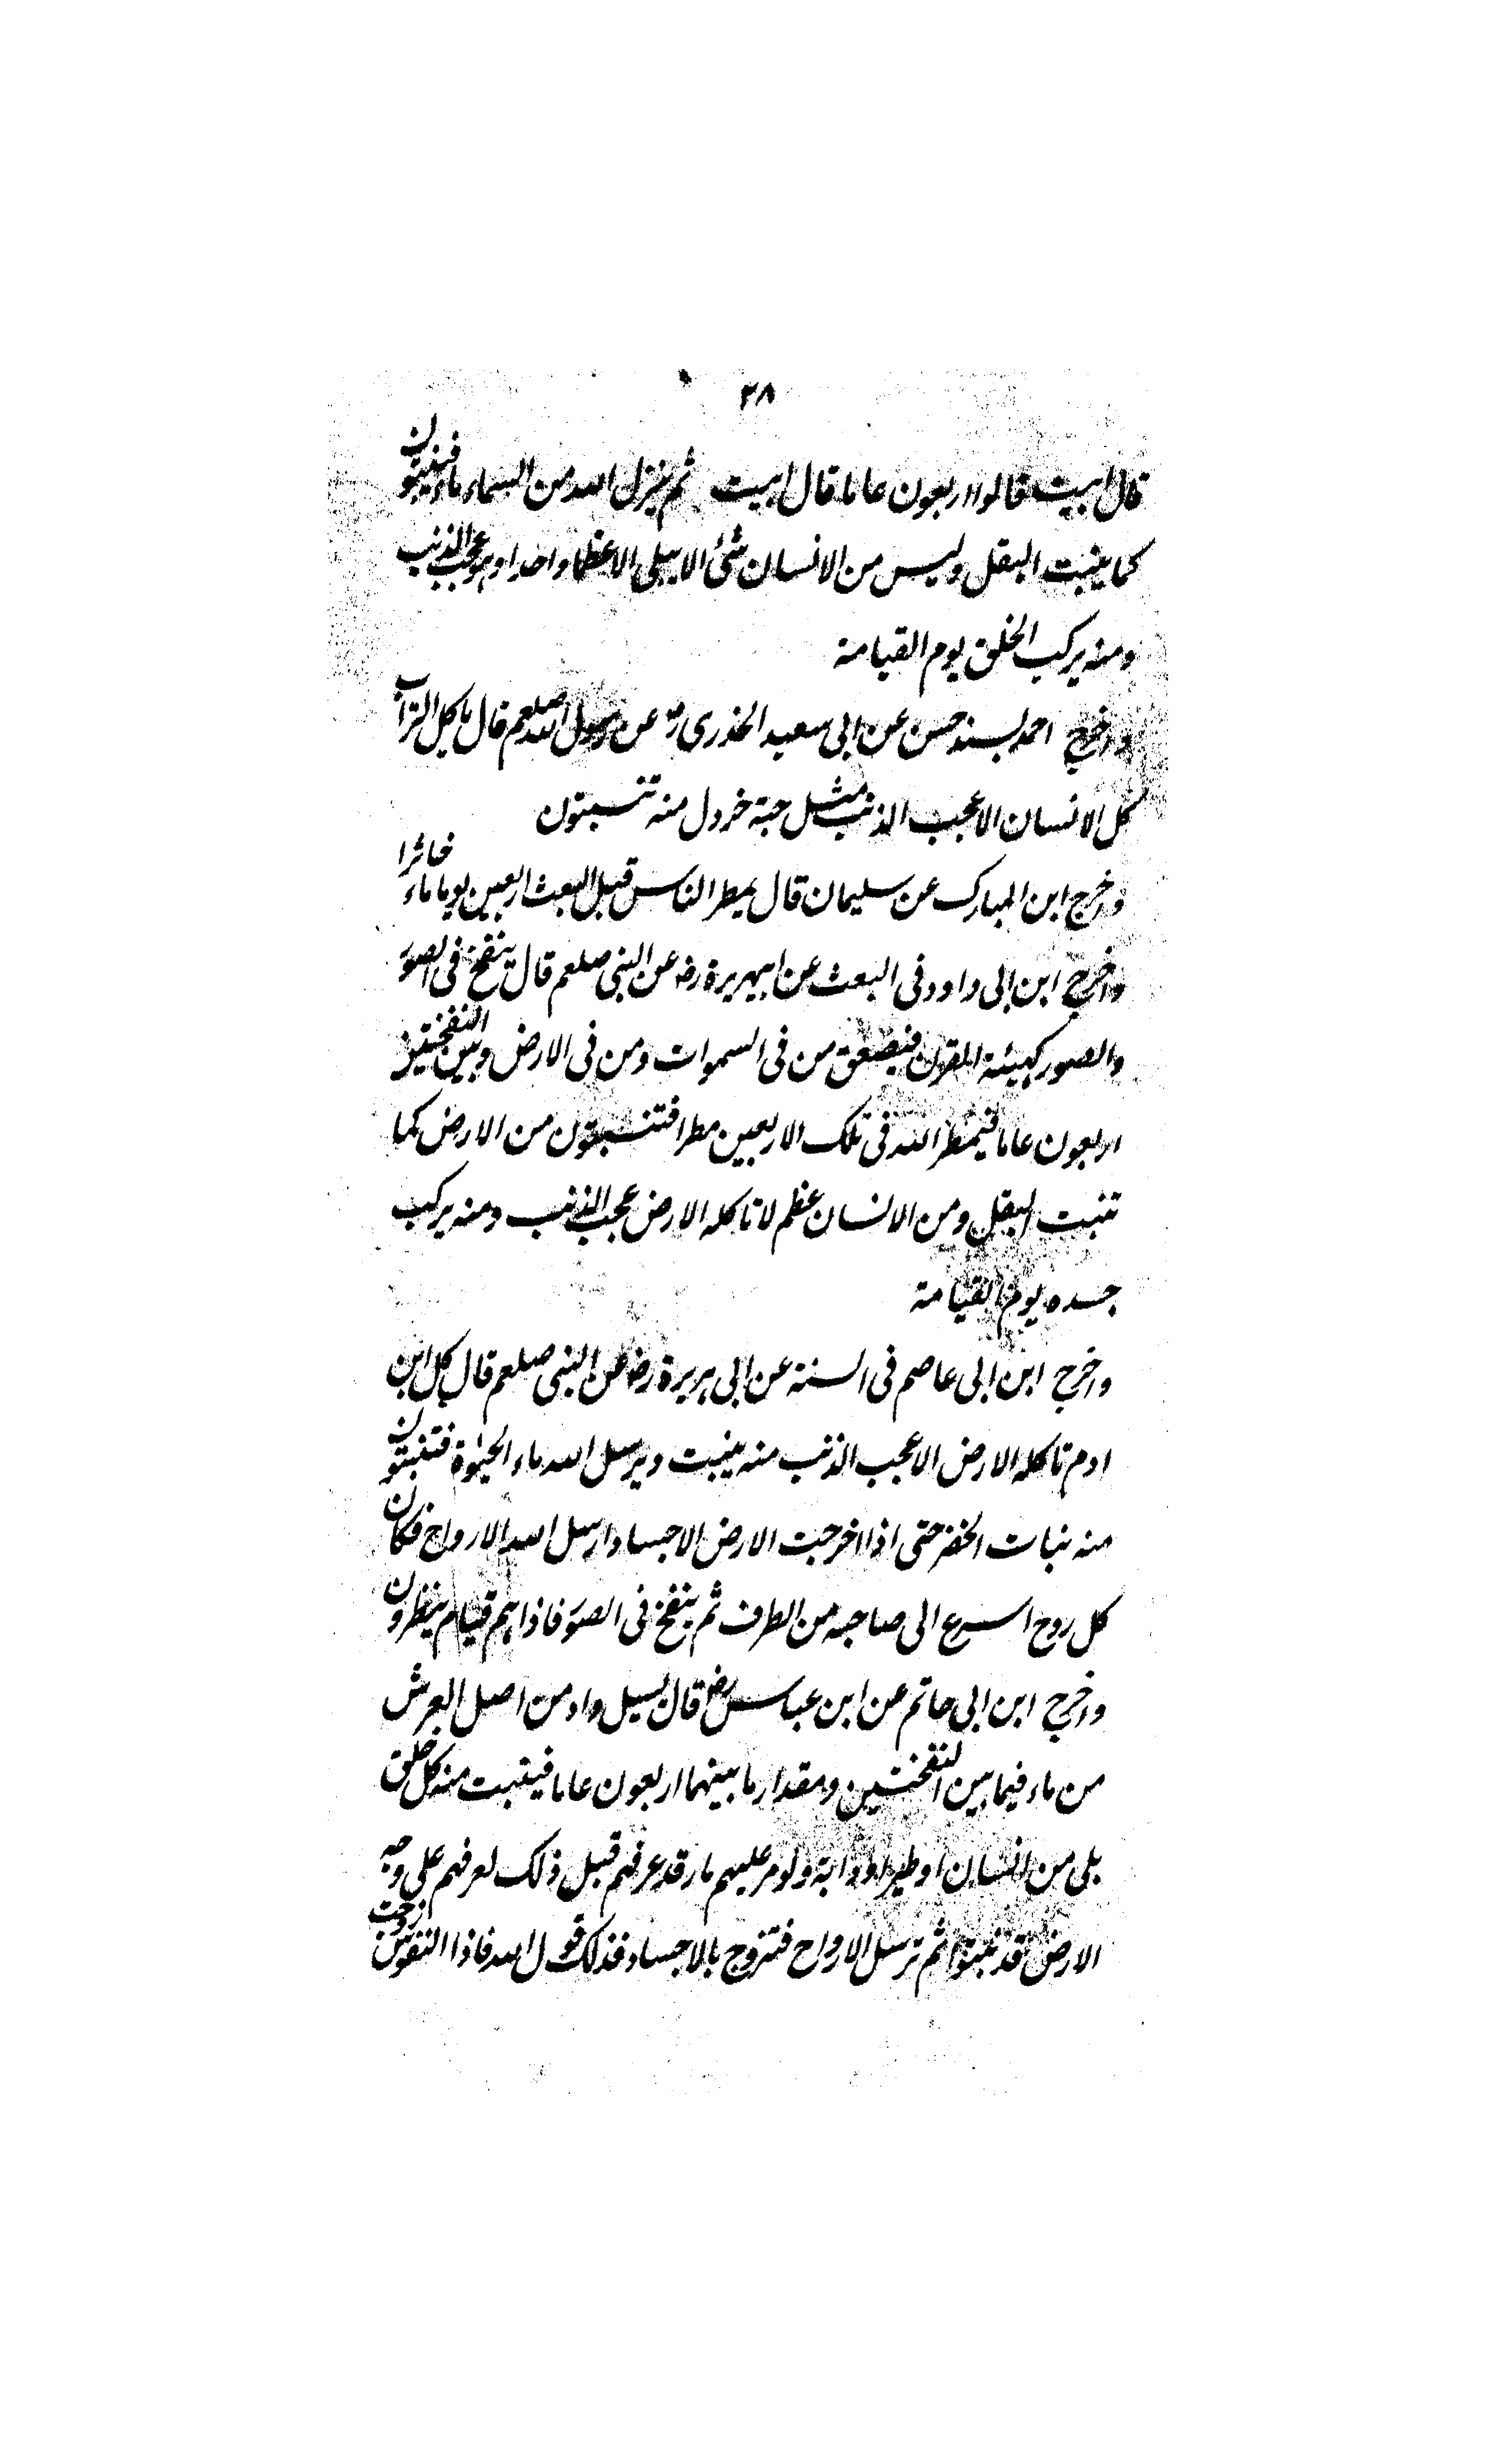 ٣٨
قال ابيت قالوا اربعون عاما قال ابيت ثم ينزل الله من السماء ماء فينبتون
كما ينبت البقل وليس من الانسان شئ الا يبلى الا عظما واحدا وهو عجب الذنب
ومنه يركب الخلق يوم القيامة
واخرج احمد بسند حسن عن ابى سعيد الخدرى رض عن رسول الله صلعم قال ياكل التراب
كل الانسان الا عجب الذنب مثل حبة خردل منه تنبتون
واخرج ابن المبارك عن سليمان قال يمطر الناس قبل البعث اربعين يوما ماء خاثرا
واخرج ابن ابى داود فى البعث عن ابيهريرة رض عن النبى صلعم قال ينفخ فى الصور
والصور كهيئة القرن فيصعق من فى السموات ومن فى الارض وبين النفختين
اربعون عاما فيمطر الله فى تلك الاربعين مطرا فتنبتون من الارض كما
تنبت البقل ومن الانسان عظم لا تاكله الارض عجب الذنب ومنه يركب
جسده يوم القيامة
واخرج ابن ابى عاصم فى السنة عن ابى هريرة رض عن النبى صلعم قال كل ابن
ادم تاكله الارض الا عجب الذنب منه ينبت ويرسل الله ماء الحيوة فتنبتون
منه نبات الخضر حتى اذا اخرجت الارض الاجساد ارسل الله الارواح فكان
كل روح اسرع الى صاحبه من الطرف ثم ينفخ فى الصور فاذا هم قيام ينظرون
واخرج ابن ابى حاتم عن ابن عباس رض قال يسيل واد من اصل العرش
من ماء فيما بين النفختين ومقدار ما بينهما اربعون عاما فينبت منه كل خلق
بلى من انسان او طير او دابة ولو مر عليهم مار قد عرفهم قبل ذلك لعرفهم على وجه
الارض قد نبتوا ثم ترسل الارواح فتزوج بالاجساد فذلك قول الله فاذا النفوس زوجت